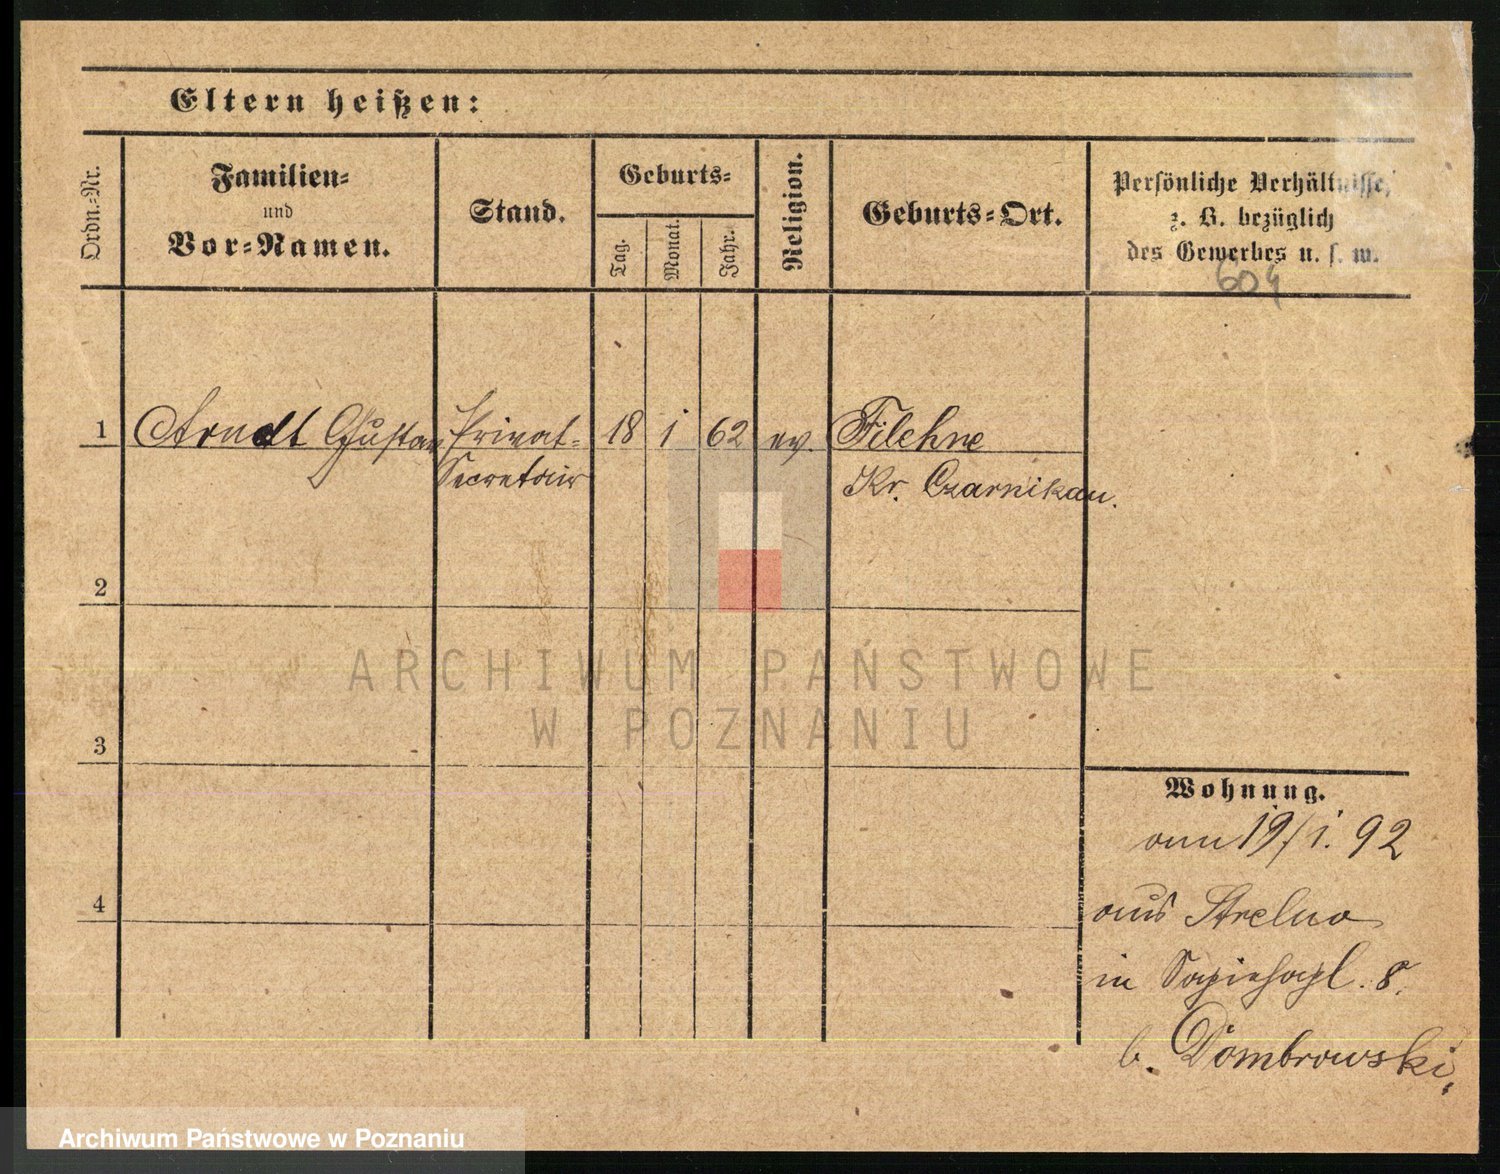 Eltern heißen:
Ordn.-Nr.
Familien-
und
Vor-Namen.
Stand.
Geburts-
Tag.
Monat.
Jahr.
Religion.
Geburts-Ort.
Persönliche Verhältnisse,
z. B. bezüglich
des Gewerbes u. s. w.
604
1 Arndt Gustav Privat- 18 1 62 ev. Filehne
Secretair Kr. Czarnikau.
2
3
4
Wohnung.
am 19/1. 92
aus Strelno
in Sapiehapl. 8.
b. Dombrowski,
ARCHIWUM PAŃSTWOWE
W POZNANIU
Archiwum Państwowe w Poznaniu